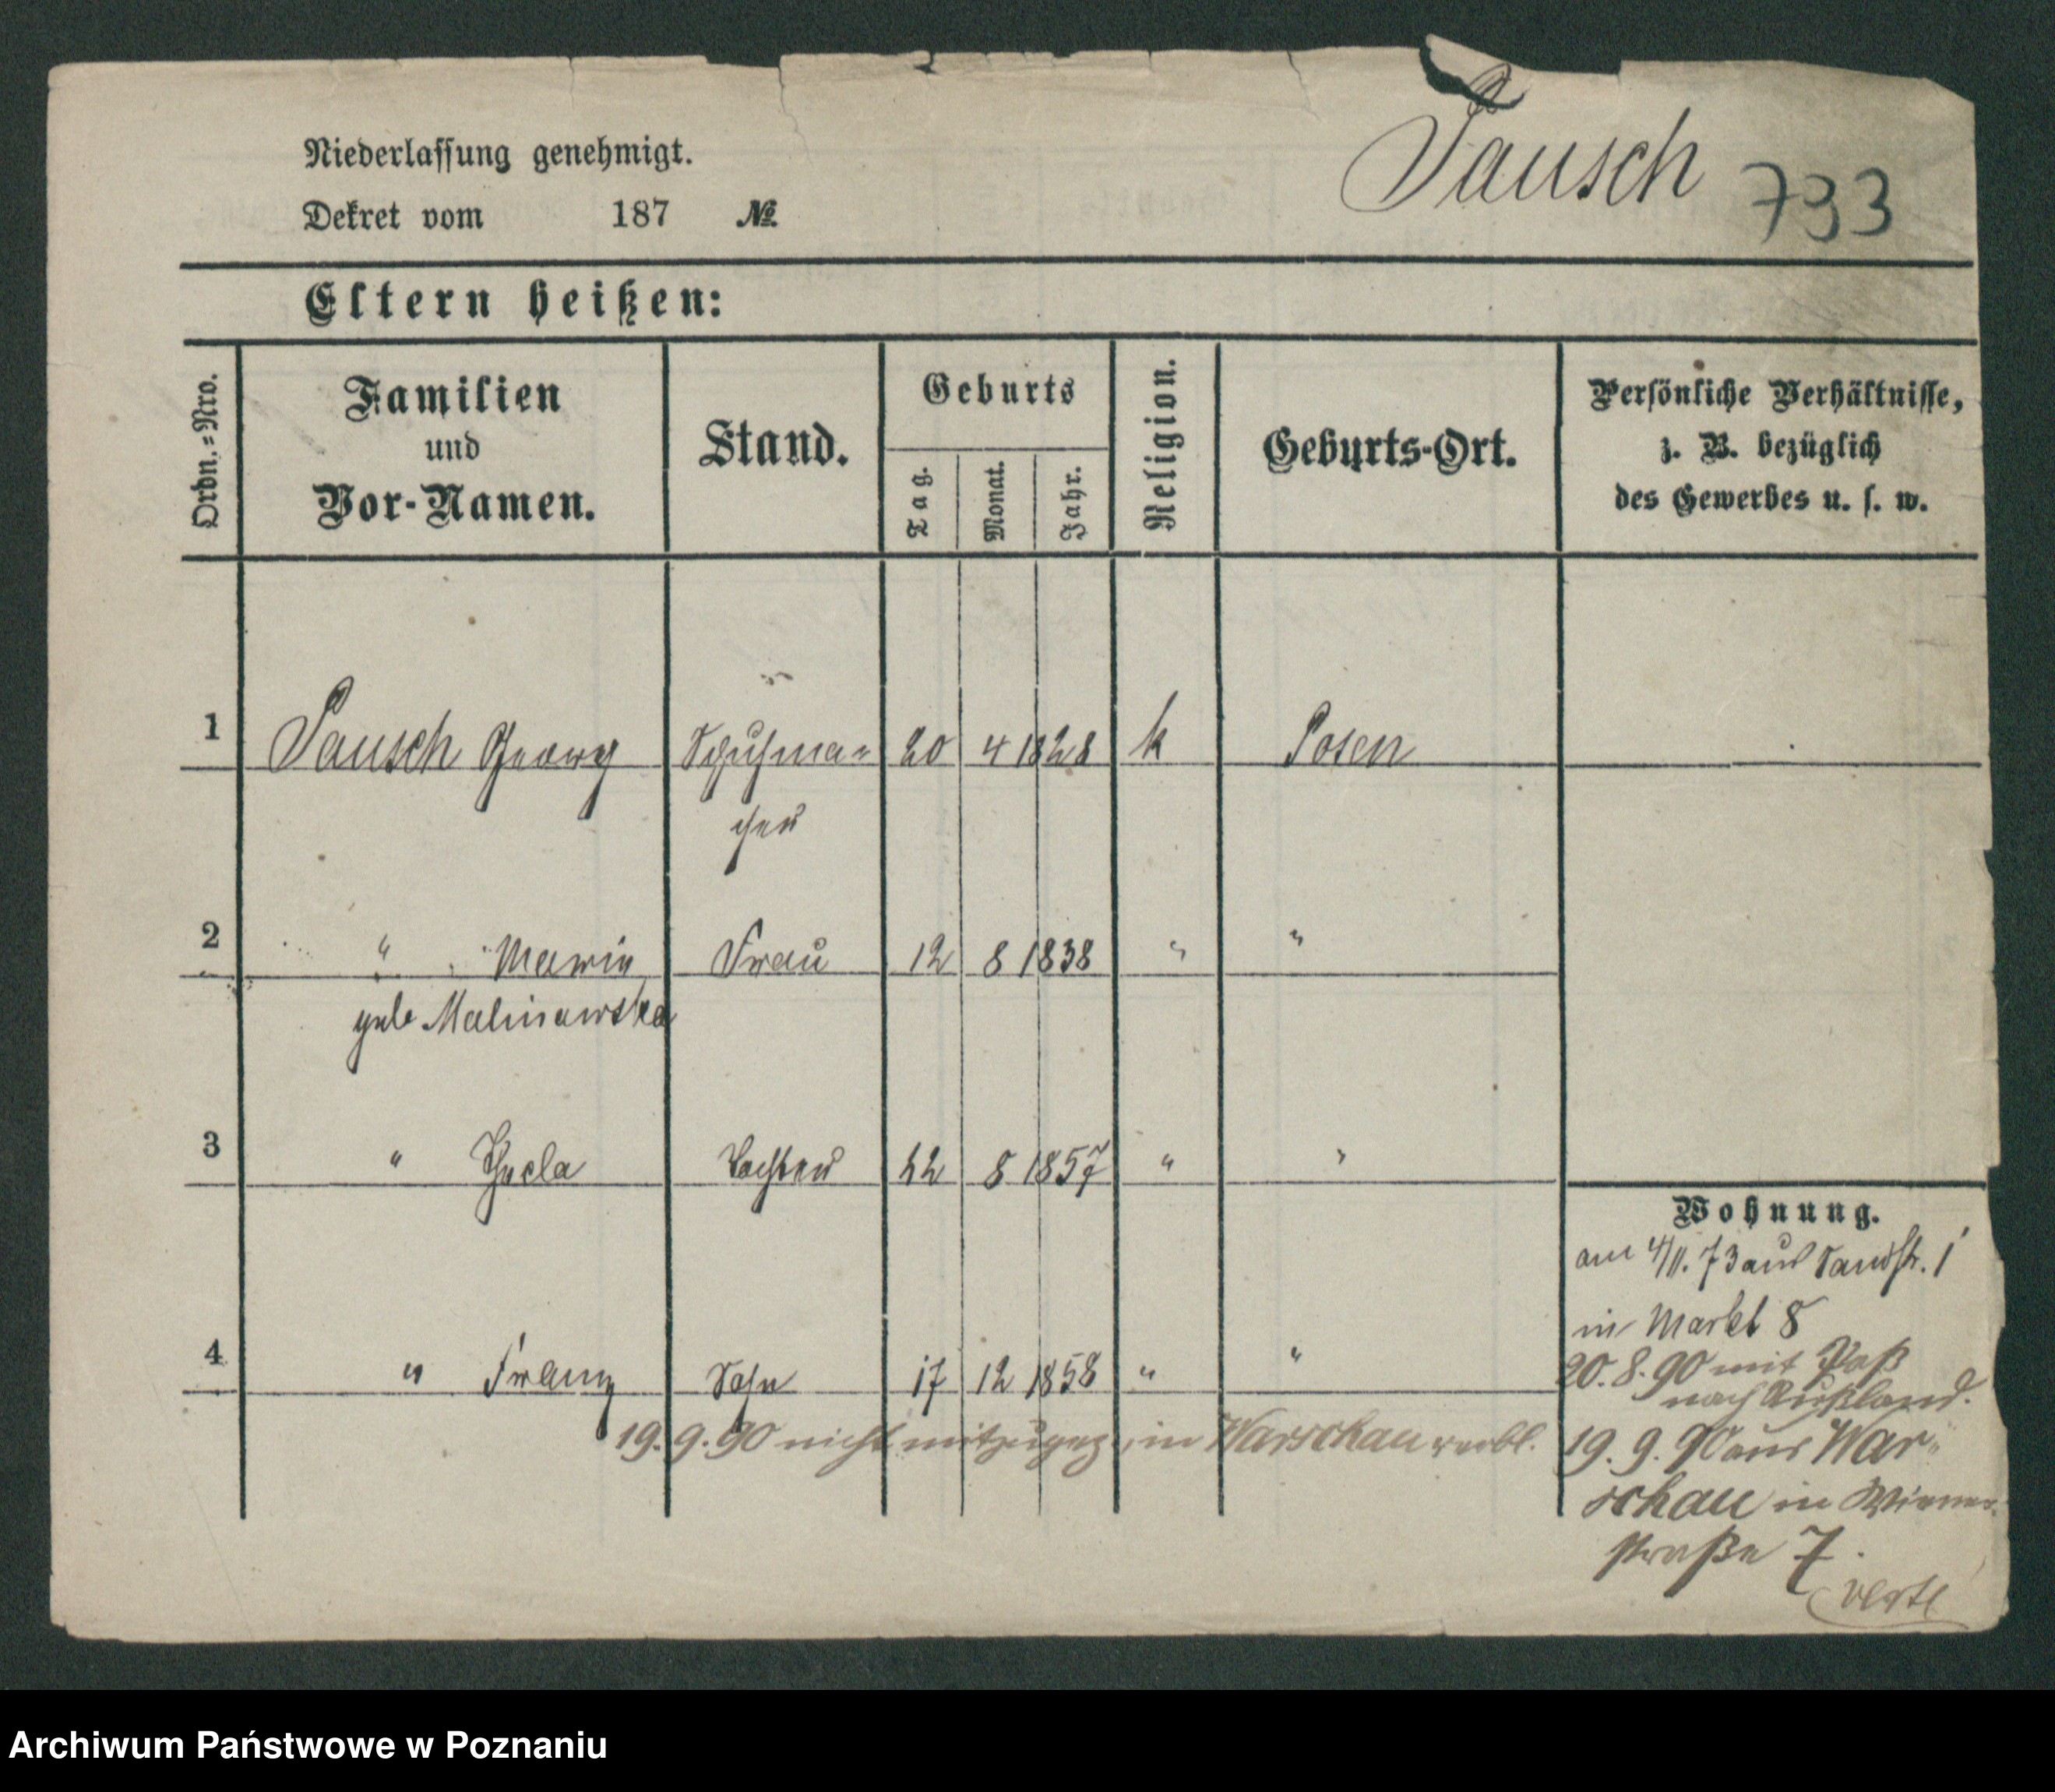 Niederlassung genehmigt.
Dekret vom 187 №
Pausch 733
Eltern heißen:
Ordn.-Nro.
Familien
und
Vor-Namen.
Stand.
Geburts
Tag.
Monat.
Jahr.
Religion.
Geburts-Ort.
Persönliche Verhältnisse,
z. B. bezüglich
des Gewerbes u. s. w.
1 Pausch Georg Schuhma= 20 4 1828 k Posen
cher
2 " Maria Frau 12 8 1838 " "
geb Malinowska
3 " Thecla Tochter 22 8 1857 " "
4 " Franz Sohn 17 12 1858 " "
19.9.90 nicht mitzugez., in Warschau verbl.
Wohnung.
am 4/11. 73 aus Sandstr. 1
in Markt 8
20.8.90 mit Paß
nach Rußland.
19.9.90 aus War=
schau in Wiener-
straße 7.
verte
Archiwum Państwowe w Poznaniu